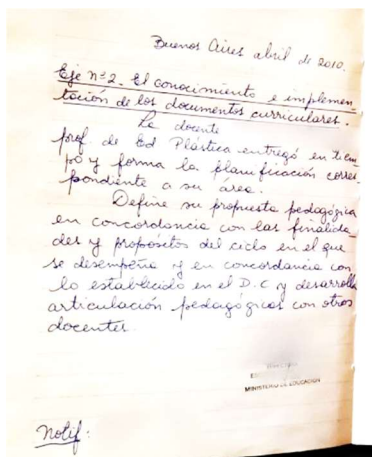 Buenos Aires abril de 2010.
Eje nº2. El conocimiento e implemen-
tación de los documentos curriculares.
La docente
prof. de Ed Plástica entregó en tiem-
po y forma la planificación corres-
pondiente a su área.
Define su propuesta pedagógica
en concordancia con las finalida-
des y propósitos del ciclo en el que
se desempeña y en concordancia con
lo establecido en el D.C y desarrolla
articulación pedagógicas con otros
docentes.
MINISTERIO DE EDUCACIÓN
Notif: